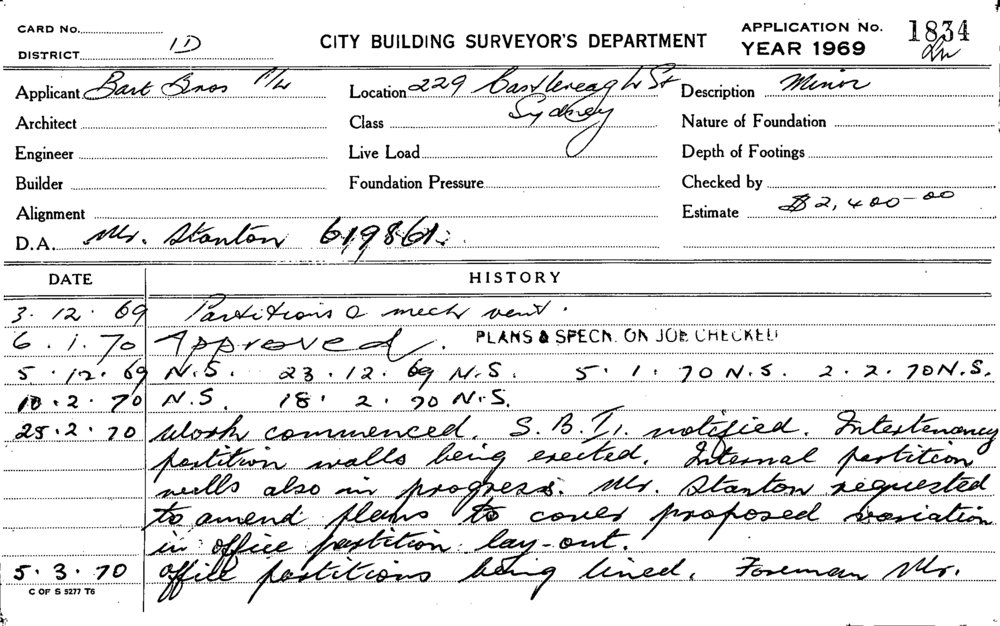 CARD No.
DISTRICT 1D
CITY BUILDING SURVEYOR'S DEPARTMENT
APPLICATION No. 1834
YEAR 1969
Applicant Bart Bros P/L
Location 229 Castlereagh St
Sydney
Description Minor
Architect
Class
Nature of Foundation
Engineer
Live Load
Depth of Footings
Builder
Foundation Pressure
Checked by
Alignment
Estimate $2,400-00
D.A. Mr. Stanton 619861.
DATE HISTORY
3.12.69 Partitions & mech vent.
6.1.70 Approved. PLANS & SPECN. ON JOB CHECKED
5.12.69 N.S. 23.12.69 N.S. 5.1.70 N.S. 2.2.70 N.S.
10.2.70 N.S. 18.2.70 N.S.
25.2.70 Work commenced. S.B.I. notified. Intertenancy
partition walls being erected. Internal partition
walls also in progress. Mr. Stanton requested
to amend plans to cover proposed variation
in office partition lay-out.
5.3.70 Office partitions being lined. Foreman Mr.
C OF S 5277 T6